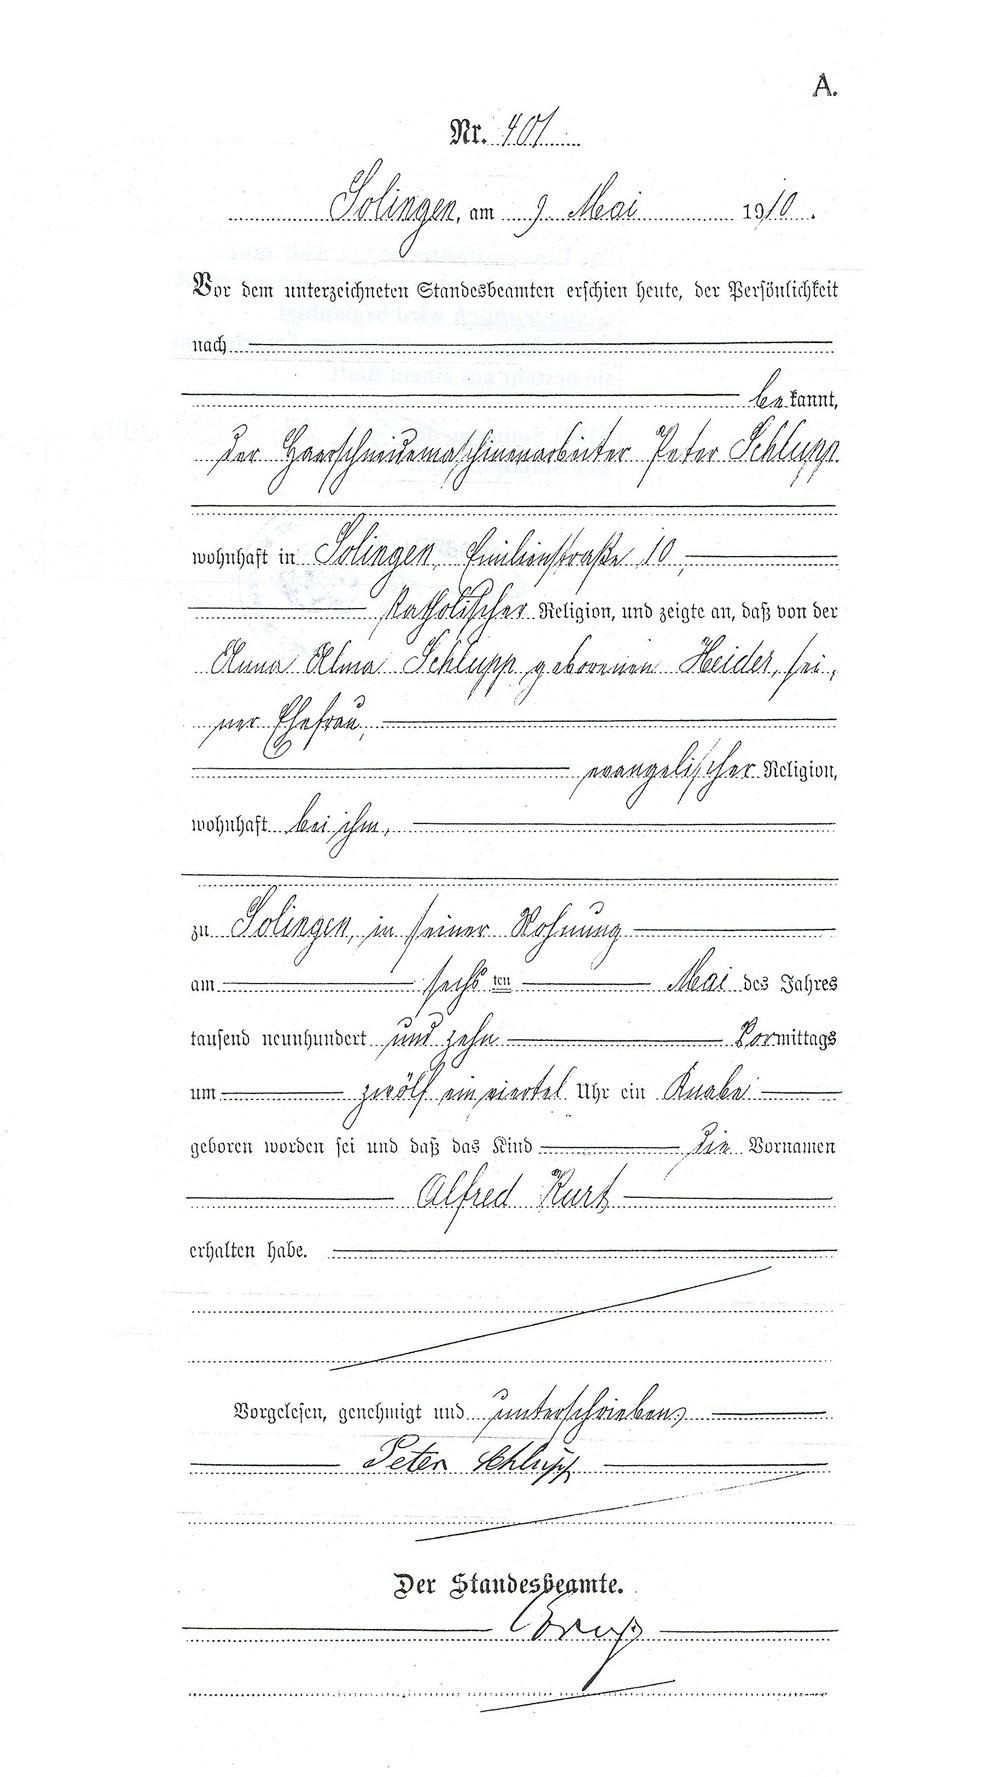 A.
Nr. 401
Solingen, am 9. Mai 1910.
Vor dem unterzeichneten Standesbeamten erschien heute, der Persönlichkeit
nach
bekannt,
der Haarschneidemaschinenarbeiter Peter Schlupp
wohnhaft in Solingen, Emilienstraße 10,
katholischer Religion, und zeigte an, daß von der
Anna Alma Schlupp geborenen Heider, sei-
ner Ehefrau,
evangelischer Religion,
wohnhaft bei ihm,
zu Solingen, in seiner Wohnung
am sechsten Mai des Jahres
tausend neunhundert und zehn Vormittags
um zwölf ein viertel Uhr ein Knabe
geboren worden sei und daß das Kind die Vornamen
Alfred Kurt
erhalten habe.
Vorgelesen, genehmigt und unterschrieben
Peter Schlupp
Der Standesbeamte.